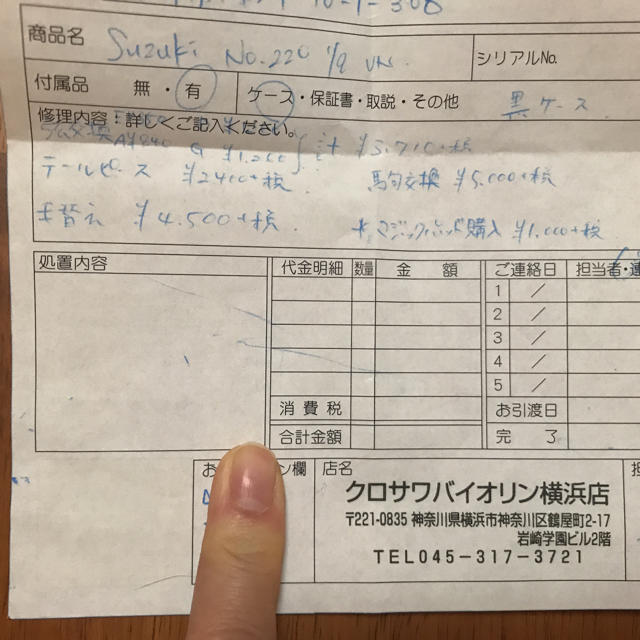 10-1-308
商品名 Suzuki No.220 1/9 VN. シリアルNo.
付属品 無・有 ケース・保証書・取説・その他 黒ケース
修理内容:詳しくご記入ください。
G ¥1,200 計 ¥3,710+税
テールピース ¥2400+税 駒交換 ¥5.000+税
毛替え ¥4.500+税 購入 ¥1.000+税
処置内容 代金明細 数量 金額 ご連絡日 担当者・連
1 /
2 /
3 /
4 /
5 /
消費税 お引渡日
合計金額 完了
お ン欄 店名 担
クロサワバイオリン横浜店
〒221-0835 神奈川県横浜市神奈川区鶴屋町2-17
岩崎学園ビル2階
TEL045-317-3721